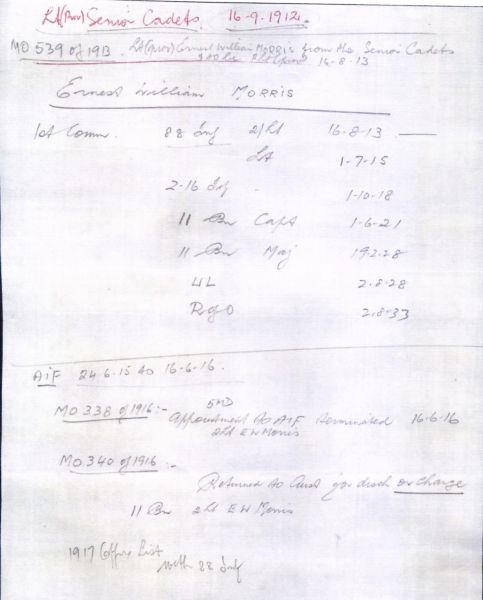 Lt (Prov) Senior Cadets. 16-9-1912.
MO 539 of 1913. Lt (prov) Ernest William Morris from the Senior Cadets
to be 2Lt (prov) 16-8-13
Ernest William MORRIS
1st Comm. 88 Inf 2/Lt 16-8-13
Lt 1-7-15
2-16 Inf 1-10-18
11 Bn Capt 1-6-21
11 Bn Maj 19.2.28
UL 2.8.28
RofO 2.8.33
AIF 24 6.15 to 16-6-16.
MO 338 of 1916:- 5MD
Appointment to AIF terminated 16-6-16
2Lt E W Morris
MO 340 of 1916 :-
Returned to Aust for disch or change
11 Bn 2Lt E W Morris
1917 Officers List
with 88 Inf